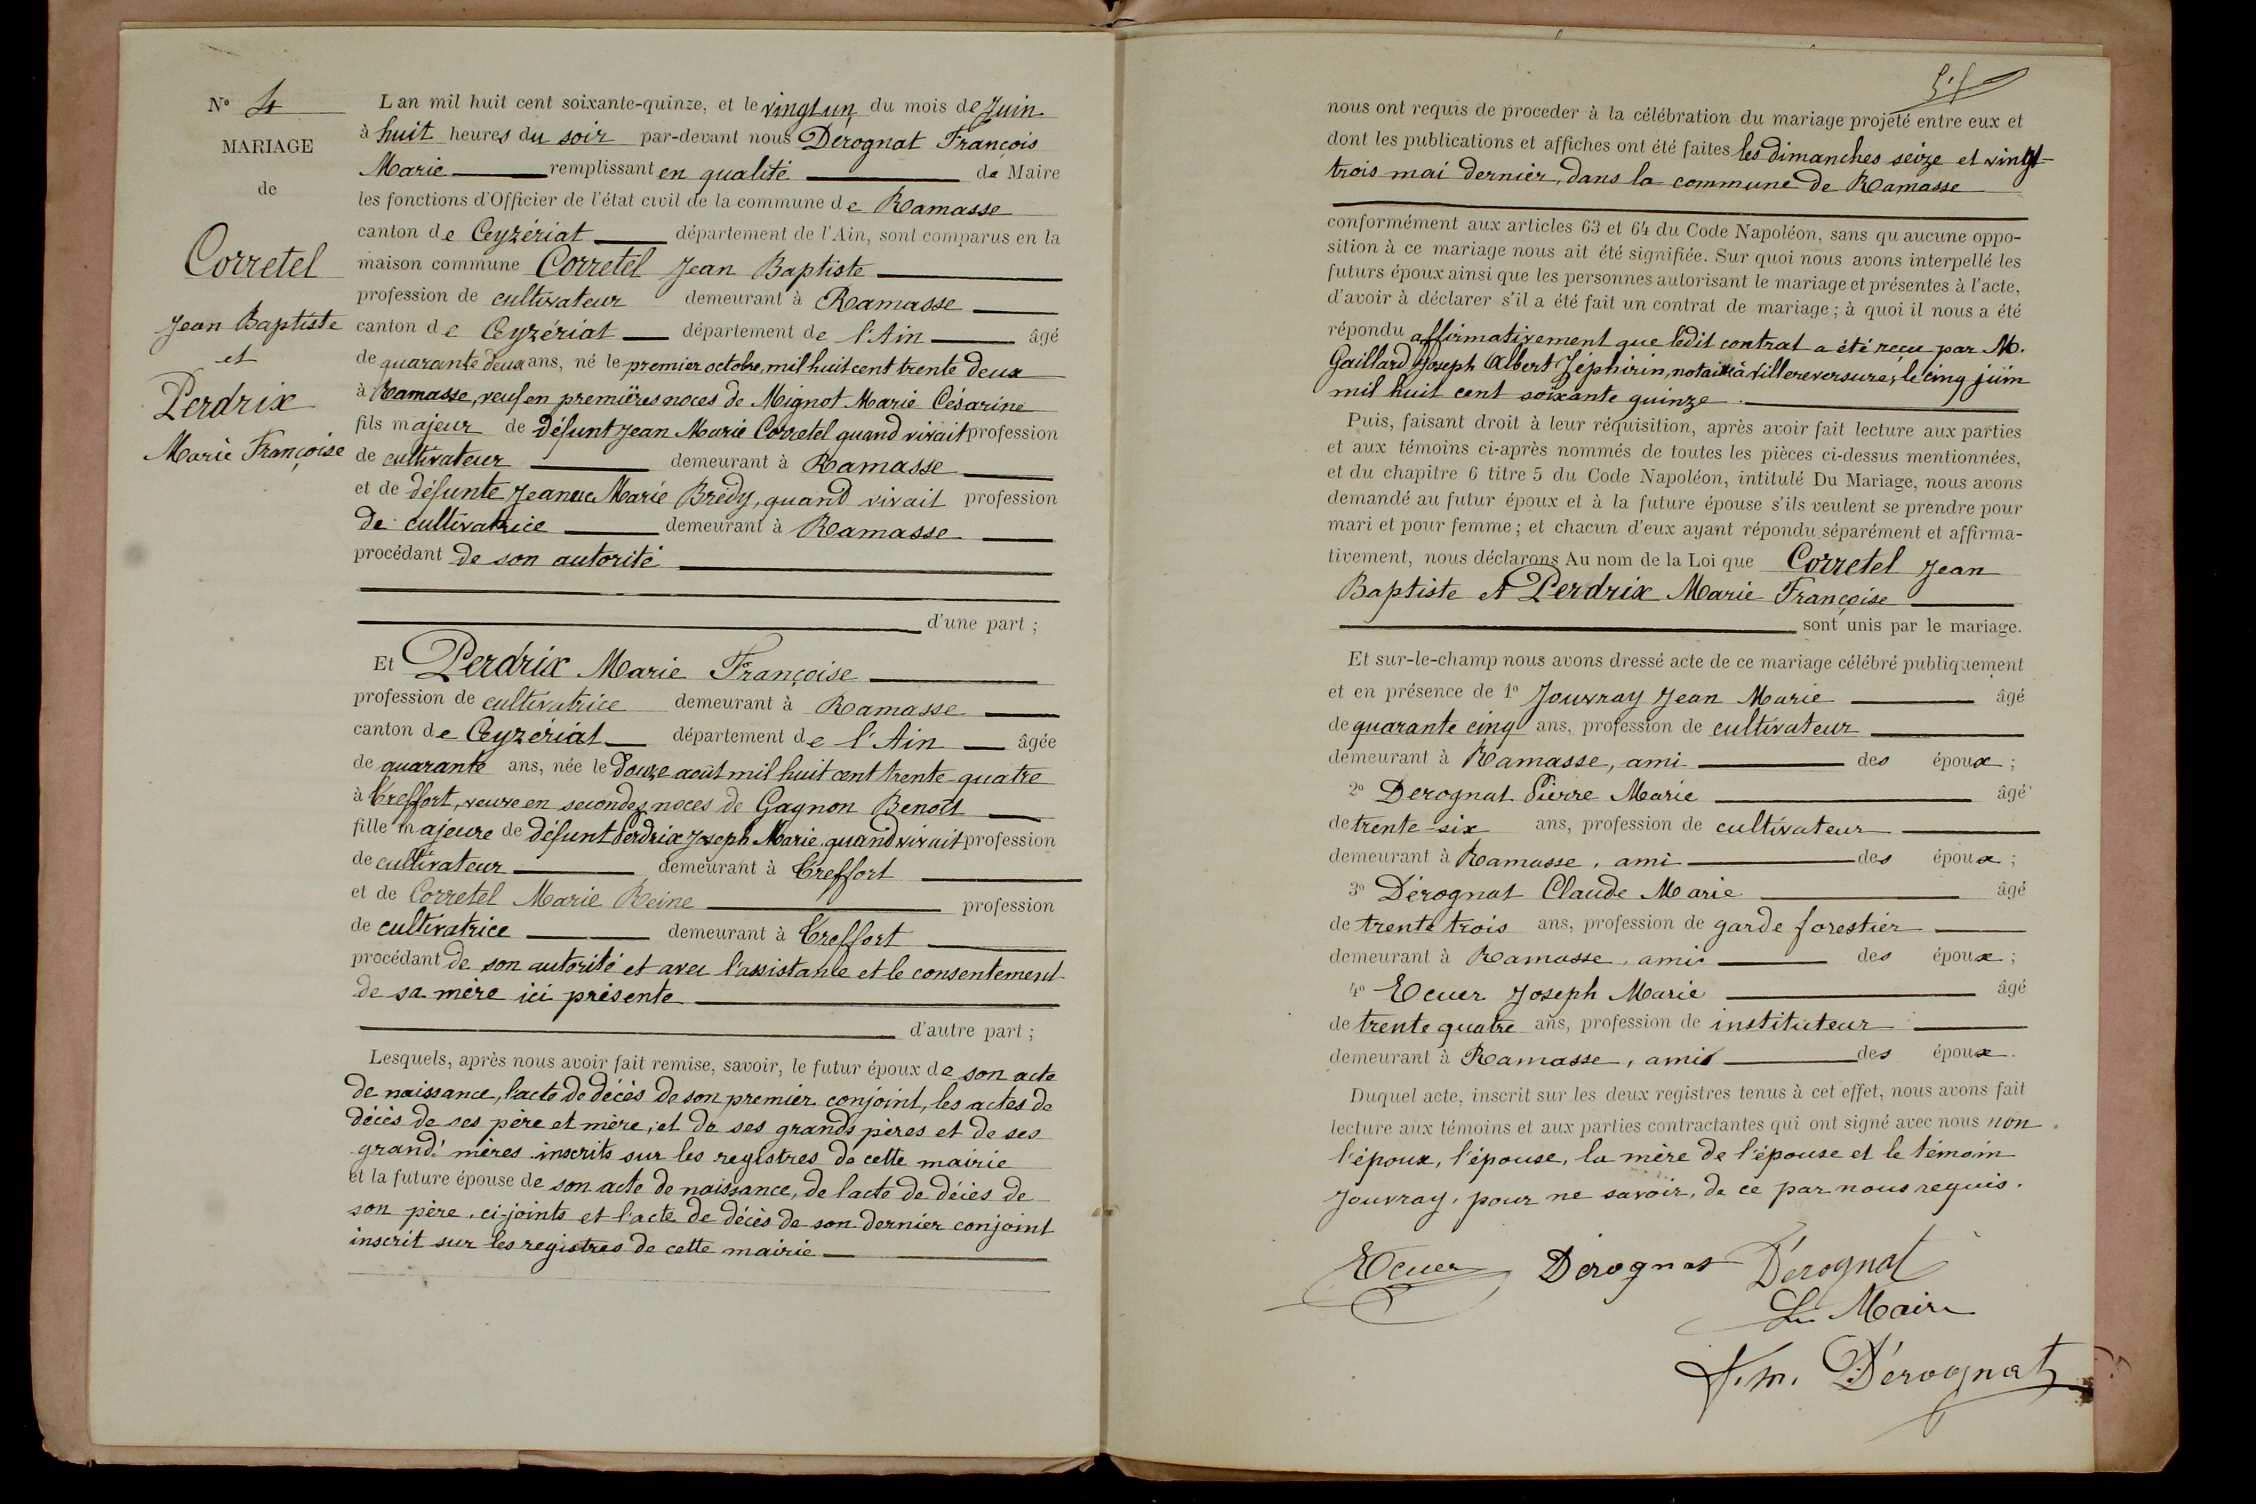 Nº 4
MARIAGE
de
Corretel
Jean Baptiste
et
Perdrix
Marie Françoise
L'an mil huit cent soixante-quinze, et le vingt un du mois de Juin
à huit heures du soir par-devant nous Dérognat François
Marie remplissant en qualité de Maire
les fonctions d'Officier de l'état civil de la commune de Ramasse
canton de Ceyzériat département de l'Ain, sont comparus en la
maison commune Corretel Jean Baptiste
profession de cultivateur demeurant à Ramasse
canton de Ceyzériat département de l'Ain âgé
de quarante deux ans, né le premier octobre, mil huit cent trente deux
à Ramasse, veuf en premières noces de Mignot Marie Césarine
fils majeur de défunt Jean Marie Corretel quand vivait profession
de cultivateur demeurant à Ramasse
et de défunte Jeanne Marie Brédy, quand vivait profession
de cultivatrice demeurant à Ramasse
procédant de son autorité
d'une part ;
Et Perdrix Marie Françoise
profession de cultivatrice demeurant à Ramasse
canton de Ceyzériat département de l'Ain âgée
de quarante ans, née le douze août mil huit cent trente-quatre
à Treffort, veuve en secondes noces de Gagnon Benoit
fille majeure de défunt Perdrix Joseph Marie quand vivait profession
de cultivateur demeurant à Treffort
et de Corretel Marie Reine profession
de cultivatrice demeurant à Treffort
procédant de son autorité et avec l'assistance et le consentement
de sa mère ici présente
d'autre part ;
Lesquels, après nous avoir fait remise, savoir, le futur époux de son acte
de naissance, l'acte de décès de son premier conjoint, les actes de
décès de ses père et mère, et de ses grands pères et de ses
grand' mères inscrits sur les registres de cette mairie
et la future épouse de son acte de naissance, de l'acte de décès de
son père, ci-joints et l'acte de décès de son dernier conjoint
inscrit sur les registres de cette mairie
nous ont requis de proceder à la célébration du mariage projeté entre eux et
dont les publications et affiches ont été faites les dimanches seize et vingt-
trois mai dernier, dans la commune de Ramasse
conformément aux articles 63 et 64 du Code Napoléon, sans qu'aucune oppo-
sition à ce mariage nous ait été signifiée. Sur quoi nous avons interpellé les
futurs époux ainsi que les personnes autorisant le mariage et présentes à l'acte,
d'avoir à déclarer s'il a été fait un contrat de mariage ; à quoi il nous a été
répondu affirmativement que ledit contrat a été reçu par M.
Gaillard Joseph Albert Zéphirin, notaire à Villereversure, le cinq juin
mil huit cent soixante quinze.
Puis, faisant droit à leur réquisition, après avoir fait lecture aux parties
et aux témoins ci-après nommés de toutes les pièces ci-dessus mentionnées,
et du chapitre 6 titre 5 du Code Napoléon, intitulé Du Mariage, nous avons
demandé au futur époux et à la future épouse s'ils veulent se prendre pour
mari et pour femme ; et chacun d'eux ayant répondu séparément et affirma-
tivement, nous déclarons Au nom de la Loi que Corretel Jean
Baptiste et Perdrix Marie Françoise
sont unis par le mariage.
Et sur-le-champ nous avons dressé acte de ce mariage célébré publiquement
et en présence de 1º Jouvray Jean Marie âgé
de quarante cinq ans, profession de cultivateur
demeurant à Ramasse, ami des époux ;
2º Derognat Pierre Marie âgé
de trente-six ans, profession de cultivateur
demeurant à Ramasse, ami des époux ;
3º Dérognat Claude Marie âgé
de trente trois ans, profession de garde forestier
demeurant à Ramasse, ami des époux ;
4º Ecuer Joseph Marie âgé
de trente quatre ans, profession de instituteur
demeurant à Ramasse, ami des époux.
Duquel acte, inscrit sur les deux registres tenus à cet effet, nous avons fait
lecture aux témoins et aux parties contractantes qui ont signé avec nous non
l'époux, l'épouse, la mère de l'épouse et le témoin
Jouvray, pour ne savoir, de ce par nous requis.
Ecuer Dérognat Dérognat
Le Maire
F. m. Dérognat